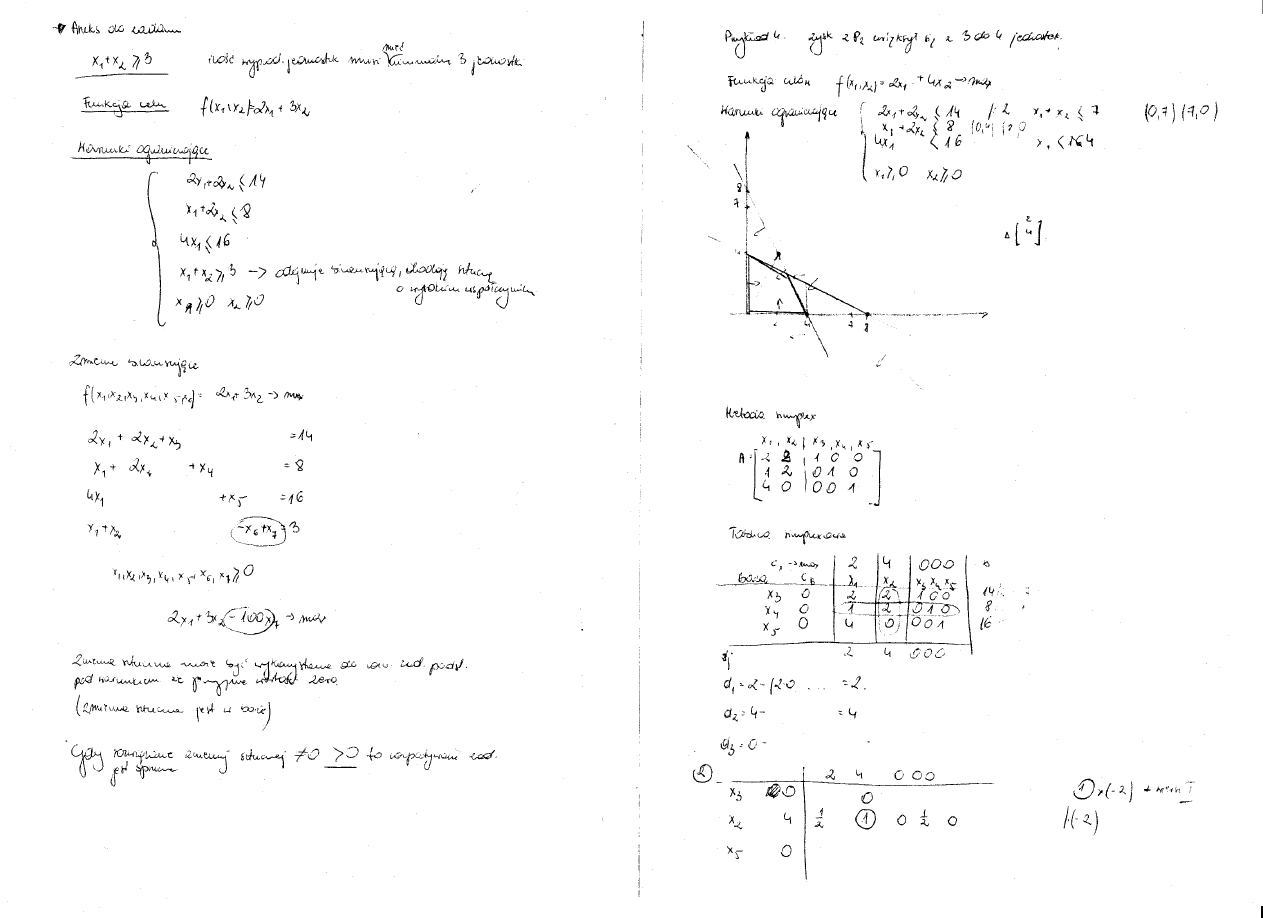 Aneks do zadania
x₁+x₂ ⩾ 3 ilość wyprod. jednostek musi mieć minimum 3 jednostki
Funkcja celu f(x₁,x₂)=2x₁ + 3x₂
Warunki ograniczające
2x₁+2x₂ ⩽ 14
x₁+2x₂ ⩽ 8
4x₁ ⩽ 16
x₁+x₂ ⩾ 3 -> sztuczną
o wysokim współczynniku
⩾0 x₂ ⩾0
Zmienne bilansujące
f(x₁,x₂,x₃,x₄,x₅,x₆)= 2x₁+3x₂ -> max
2x₁ + 2x₂ + x₃ =14
x₁ + 2x₂ +x₄ = 8
4x₁ +x₅ =16
x₁+x₂ -x₆+x₇=3
x₁,x₂,x₃,x₄,x₅,x₆,x₇ ⩾0
2x₁+3x₂-100x₇ -> max
Zmienna sztuczna może być wykorzystana do
pod warunkiem że przyjmie wartość zero
(zmienna sztuczna jest w bazie)
Gdy rozwiązanie zmiennej sztucznej ≠0 >0 to rozpatrywane zad.
jest sprzeczne
Przykład 4. zysk z P₂ zwiększył się z 3 do 4 jednostek.
Funkcja celu f(x₁,x₂)=2x₁ +4x₂ -> max
Warunki ograniczające 2x₁+2x₂ ⩽ 14 /:2 x₁+x₂ ⩽ 7 (0,7) (7,0)
x₁+2x₂ ⩽ 8
4x₁ ⩽ 16
x₁⩾0 x₂⩾0
8
7
[2 4]
4
4 7 8
Metoda simplex
x₁ x₂ x₃ x₄ x₅
A= 2 2 1 0 0
1 2 0 1 0
4 0 0 0 1
Tablica simpleksowa
cⱼ -> max 2 4 0 0 0 b
Baza C_B x₁ x₂ x₃ x₄ x₅
x₃ 0 2 2 1 0 0 14
x₄ 0 1 2 0 1 0 8
x₅ 0 4 0 0 0 1 16
2 4 0 0 0
d₁=2-(2·0 ... =2
d₂=4- =4
d₃=0-
② 2 4 0 0 0
x₃ 0 0 ①×(-2) + I
x₂ 4 ½ ① 0 ½ 0 /·(-2)
x₅ 0